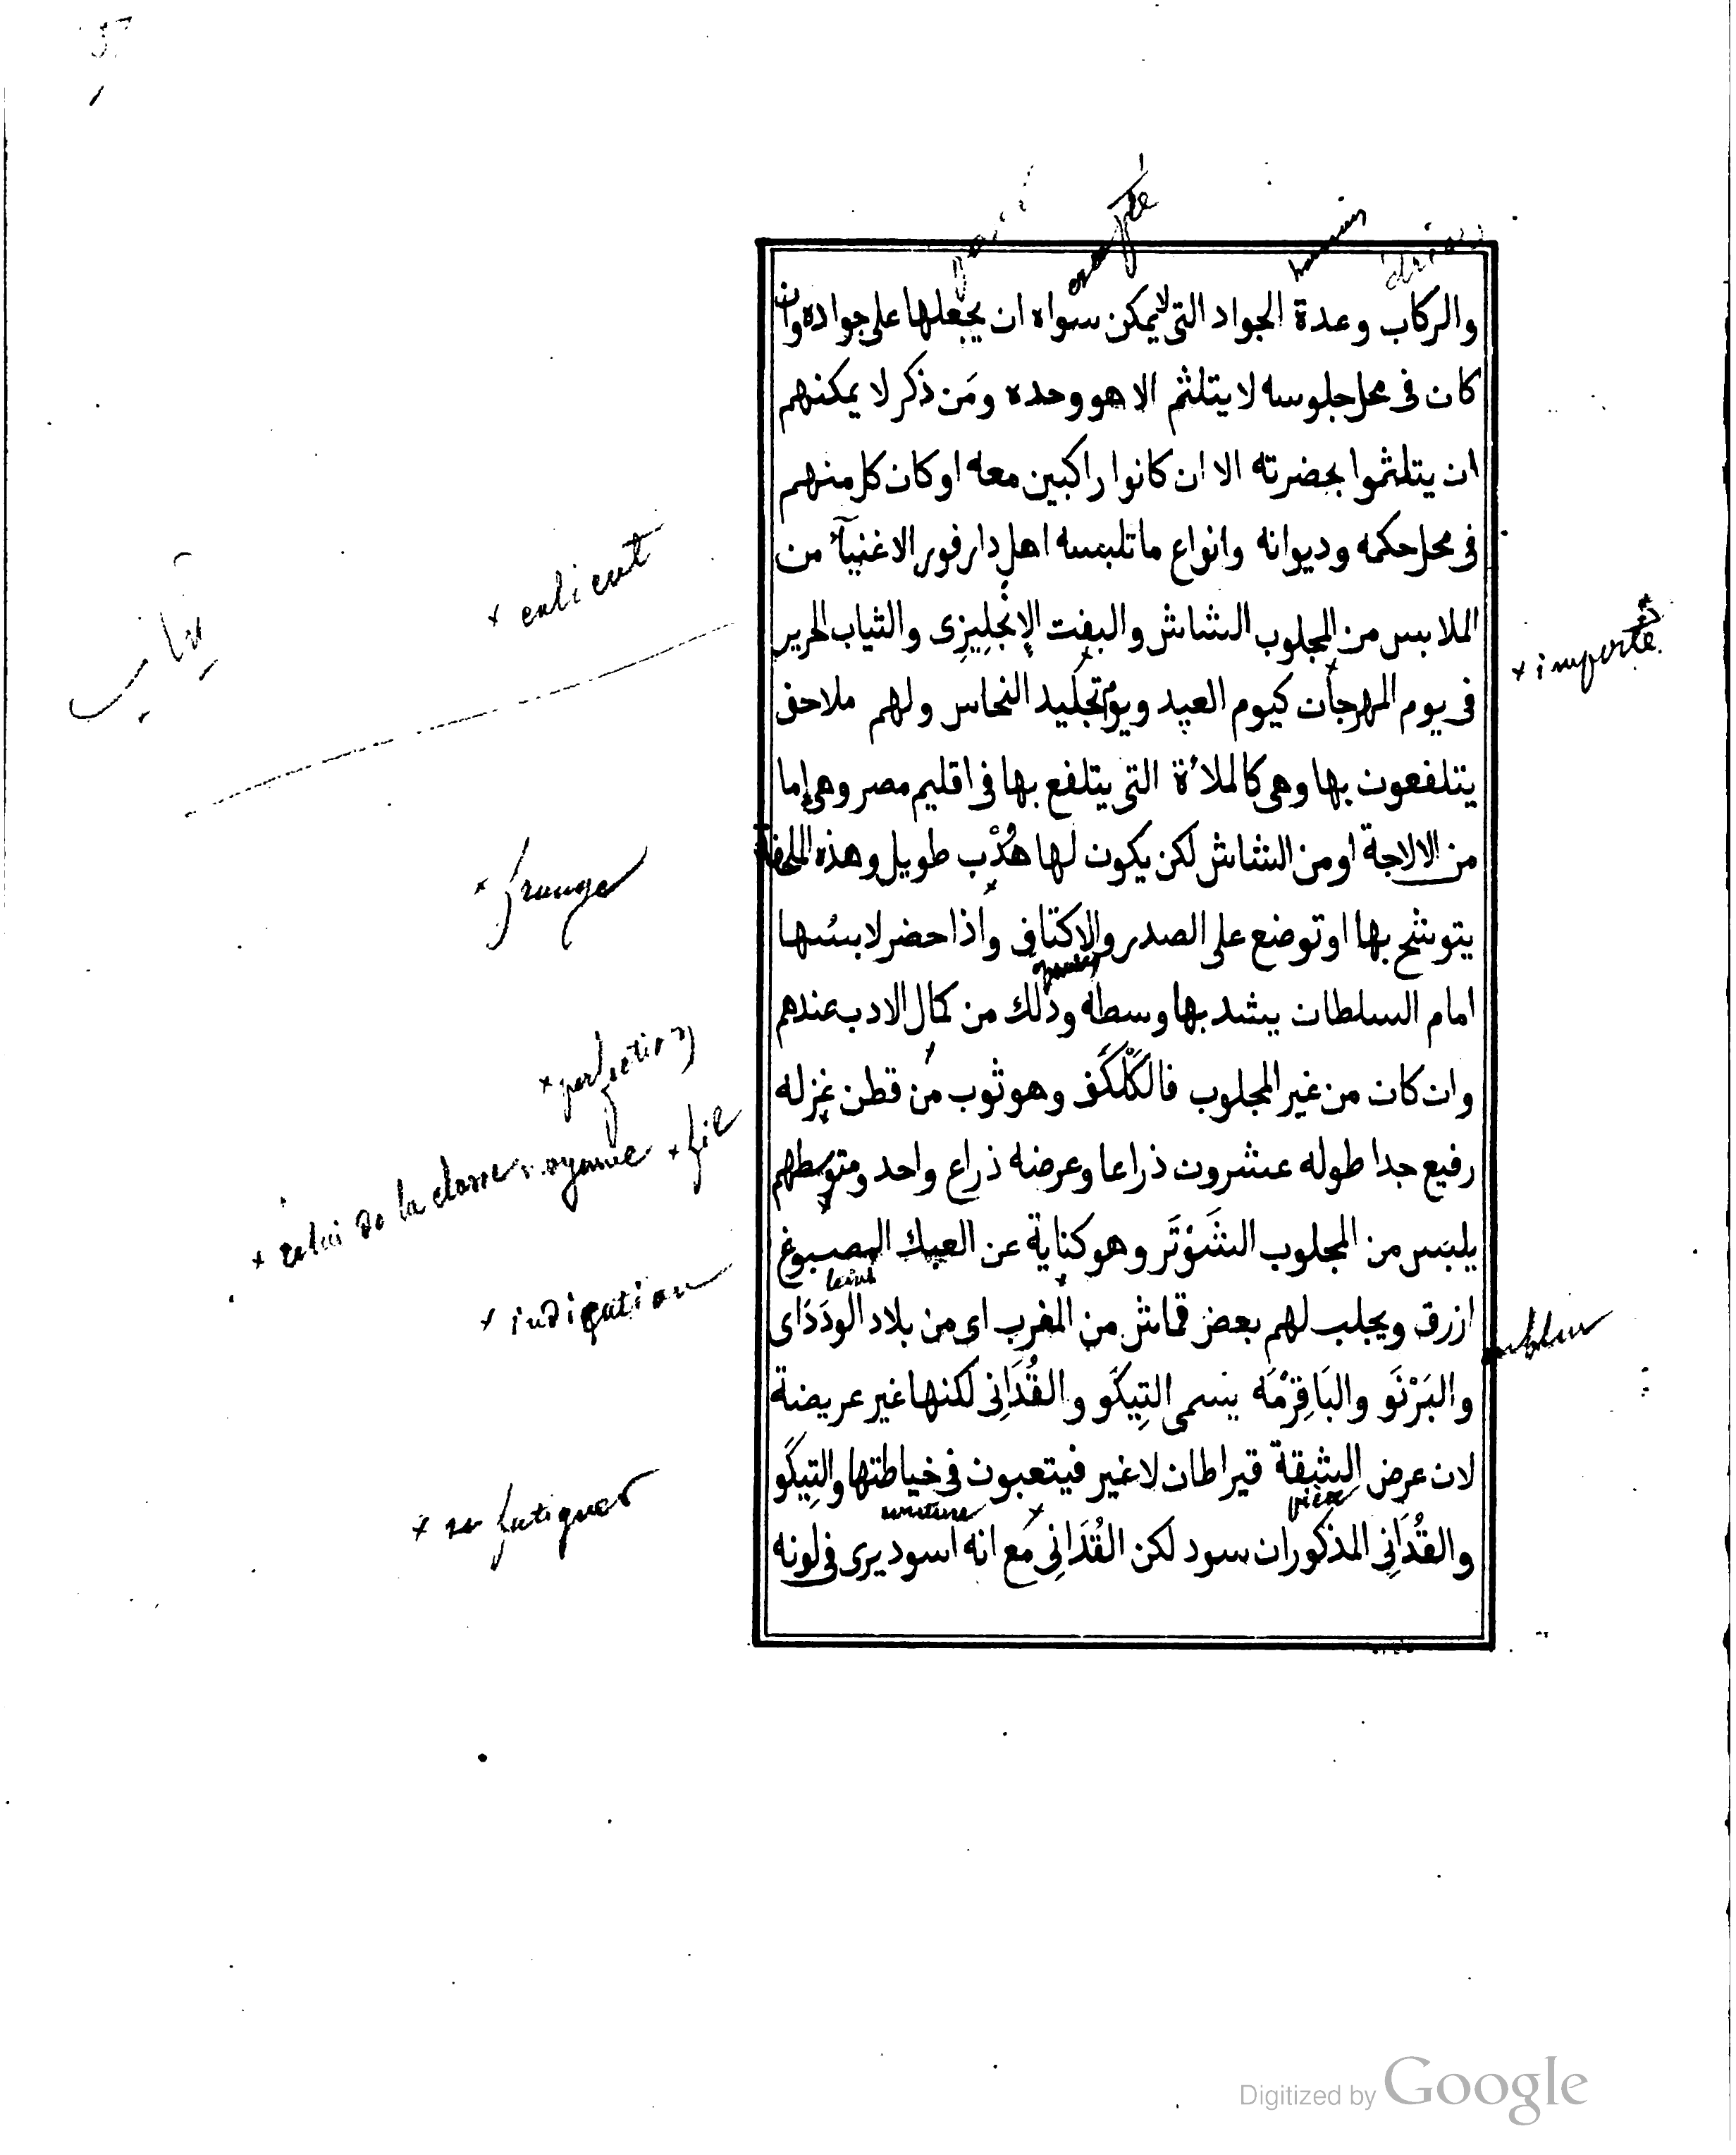 excepté
harnais
والركاب وعدة الجواد التى لا يمكن سواه ان يجعلها على جواده وان
كان فى محل جلوسه لا يتلثم الا هو وحده ومَن ذكر لا يمكنهم
ان يتلثموا بحضرته الا ان كانوا راكبين معه او كان كل منهم
فى محل حكمه وديوانه وانواع ما تلبسه اهل دارفور الاغنيآء من
الملابس من المجلوب الشاش والبفت الإنجليزى والثياب الحرير
+ importé
فى يوم المهرجان كيوم العيد ويوم تجليد النحاس ولهم ملاحق
يتلفعون بها وهى كالملاءة التى يتلفع بها فى اقليم مصر وهى إما
من الالاجة او من الشاش لكن يكون لها هُدْب طويل وهذه الملحفة
+ frange
يتوشح بها او توضع على الصدر والاكتاف واذا حضر لابسُها
امام السلطان يشد بها وسطه وذلك من كمال الادب عندهم
+ perfection
وان كان من غير المجلوب فالكَلْكَف وهو ثوب من قطن غزله
+ fil
رفيع جدا طوله عشرون ذراعا وعرضه ذراع واحد ومتوسطهم
+ celui de la classe moyenne
يلبس من المجلوب الشَوْتَر وهو كناية عن العبك المصبوغ
teint
+ indication
ازرق ويجلب لهم بعض قماش من المغرب اى من بلاد الودَدَاى
bleu
والبَرْنَو والبَاقِرْمَه يسمى التِيكَو والقُدَانِى لكنها غير عريضة
لان عرض الشقة قيراطان لا غير فيتعبون فى خياطتها والتِيكَو
pièce
couture
+ se fatiguer
والقُدَانِى المذكوران سود لكن القُدَانِى مَع انه اسود يرى فى لونه
Digitized by Google